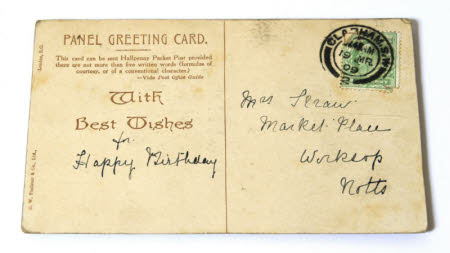 PANEL GREETING CARD.
This card can be sent Halfpenny Packet Post provided
there are not more than five written words (formulas of
courtesy, or of a conventional character.)
—Vide Post Office Guide
With
Best Wishes
for
Happy Birthday
London, E.C.
C. W. Faulkner & Co., Ltd.,
CLAPHAM. S.W
09
Mrs Straw
Market Place
Worksop
Notts